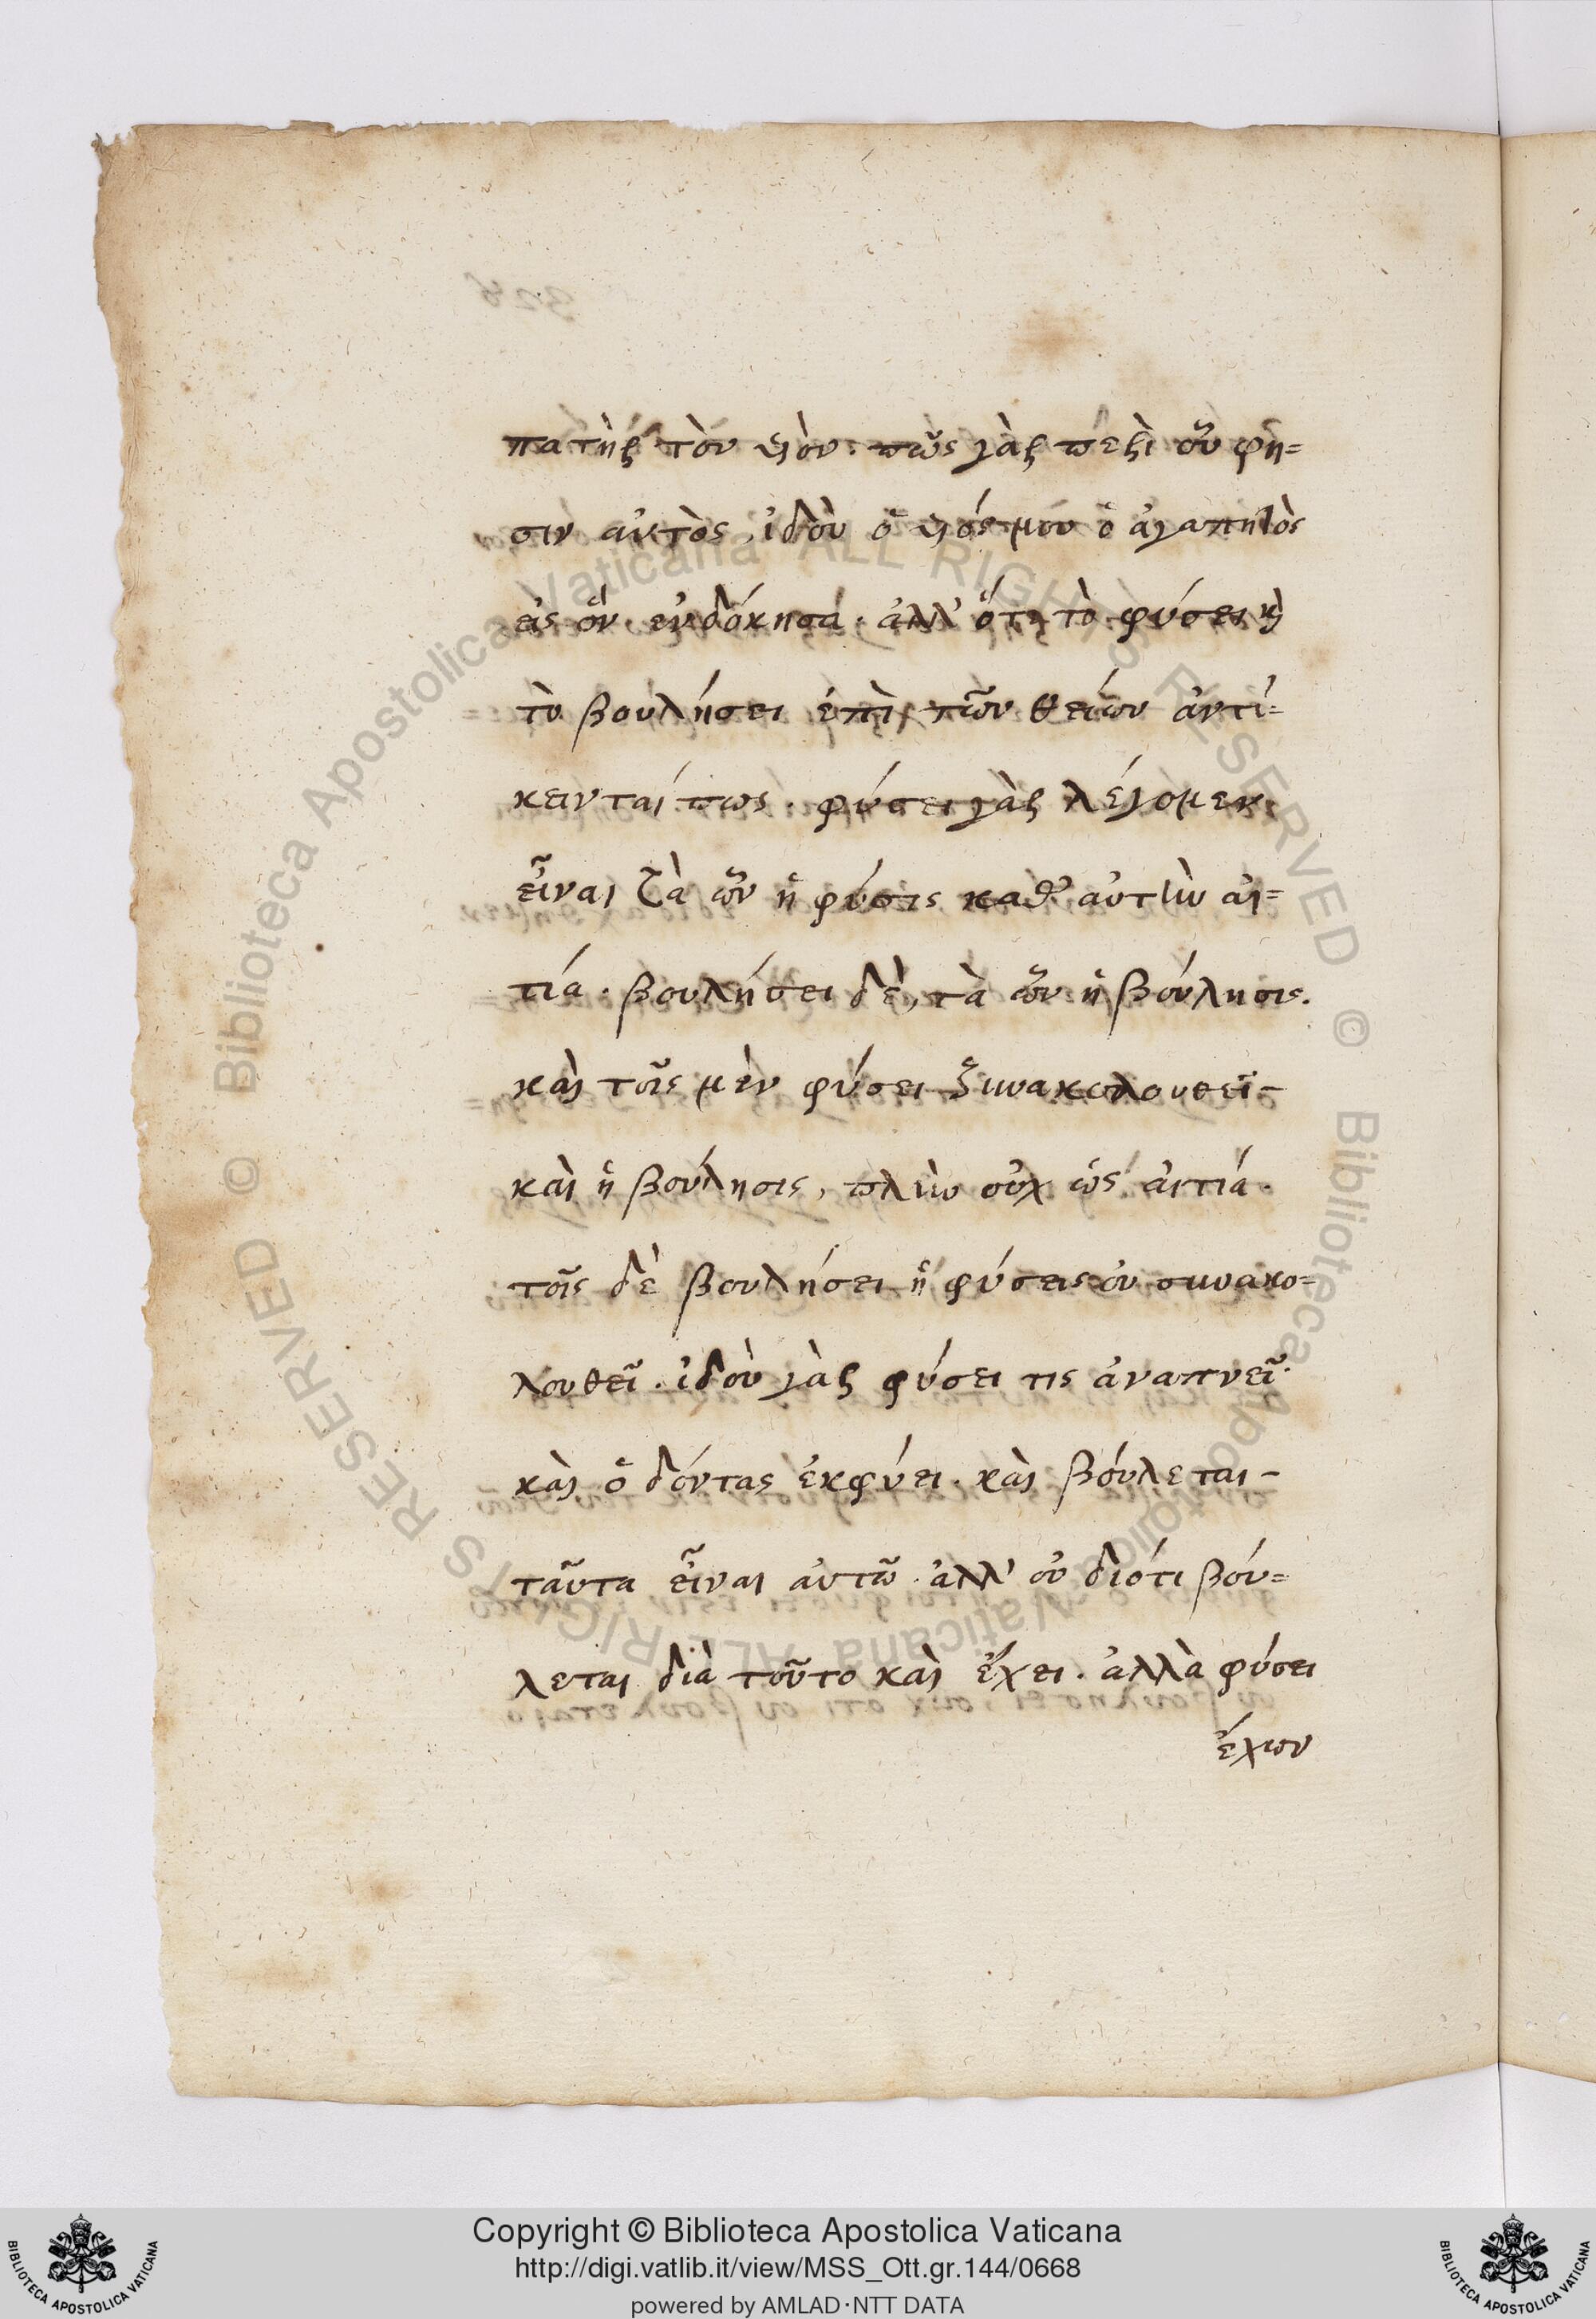 πατὴρ τὸν υἱὸν. πῶς γὰρ περὶ οὗ φη=
σιν αὐτὸς, ἰδοὺ ὁ υἱός μου ὁ ἀγαπητὸς
εἰς ὃν εὐδόκησα. ἀλλ' ὅτι τὸ φύσει κὶ
τὸ βουλήσει ἐπὶ τῶν θείων ἀντί=
κεινταί πως. φύσει γὰρ λέγομεν
εἶναι τὰ ὧν ἡ φύσις καθ' αὑτὴν αἰ=
τία. βουλήσει δὲ, τὰ ὧν ἡ βούλησις.
καὶ τοῖς μὲν φύσει ξυνακολουθεῖ-
καὶ ἡ βούλησις, πλὴν οὐχ ὡς αἰτία.
τοῖς δὲ βουλήσει ἡ φύσεις οὐ συνακο=
λουθεῖ. ἰδοὺ γὰρ φύσει τις ἀναπνεῖ.
καὶ ὀδόντας ἐκφύει. καὶ βούλεται-
ταῦτα εἶναι αὐτῶ. ἀλλ' οὐ διότι βού=
λεται διὰ τοῦτο καὶ ἔχει. ἀλλὰ φύσει
ἔχων
Copyright © Biblioteca Apostolica Vaticana
http://digi.vatlib.it/view/MSS_Ott.gr.144/0668
powered by AMLAD·NTT DATA
BIBLIOTECA APOSTOLICA VATICANA
BIBLIOTECA APOSTOLICA VATICANA
© Biblioteca Apostolica Vaticana ALL RIGHTS RESERVED
© Biblioteca Apostolica Vaticana ALL RIGHTS RESERVED